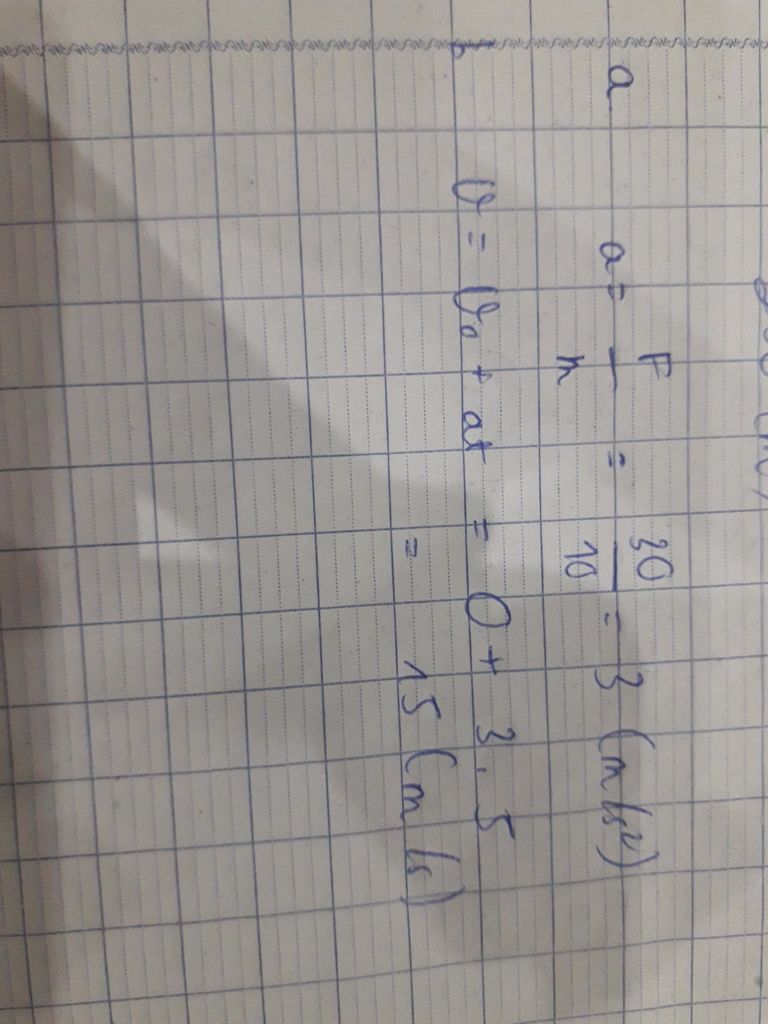 a
a = F/m = 30/10 = 3 (m/s²)
b
v = v₀ + at = 0 + 3.5
= 15 (m/s)